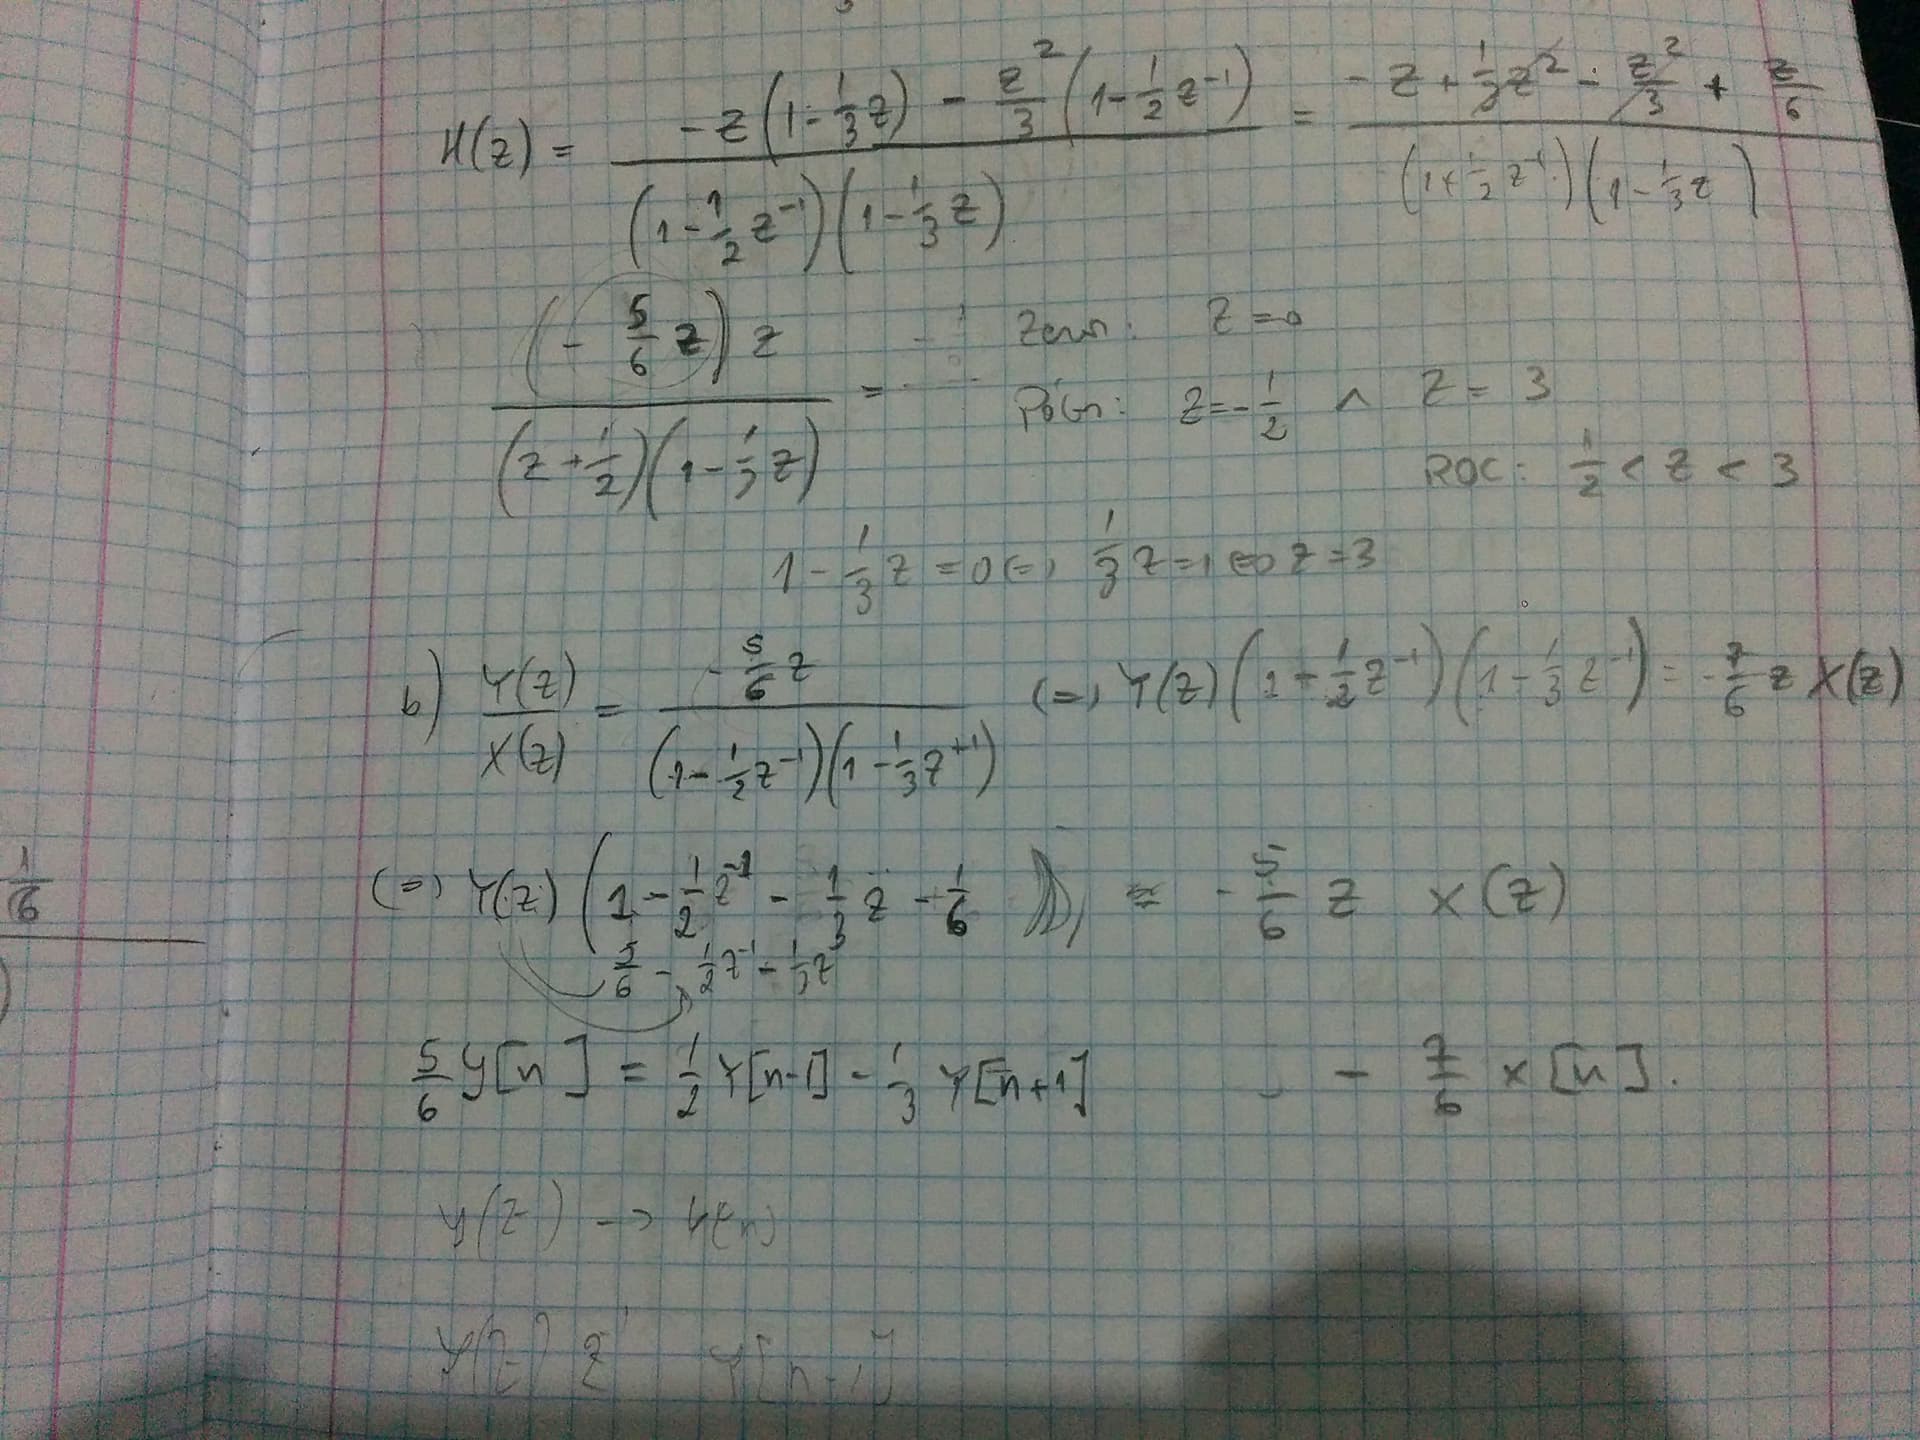 H(z) = \frac{-z(1-\frac{1}{3}z) - \frac{z^2}{3}(1-\frac{1}{2}z^{-1})}{(1-\frac{1}{2}z^{-1})(1-\frac{1}{3}z)} = \frac{-z+\frac{1}{3}z^2-\frac{z^2}{3}+\frac{z}{6}}{(1+\frac{1}{2}z^{-1})(1-\frac{1}{3}z)}
\frac{(-\frac{5}{6}z)z}{(z+\frac{1}{2})(1-\frac{1}{3}z)} =
Zeros: z=0
Pólos: z=-\frac{1}{2} ∧ z=3
ROC: \frac{1}{2} < z < 3
1-\frac{1}{3}z=0 (=) \frac{1}{3}z=1 (=) z=3
b) \frac{Y(z)}{X(z)} = \frac{-\frac{5}{6}z}{(1-\frac{1}{2}z^{-1})(1-\frac{1}{3}z^{+1})} (=) Y(z)(1-\frac{1}{2}z^{-1})(1-\frac{1}{3}z^{-1}) = -\frac{7}{6}z X(z)
(=) Y(z)(1-\frac{1}{2}z^{-1}-\frac{1}{3}z-\frac{1}{6}) = -\frac{5}{6}z X(z)
\frac{5}{6}-\frac{1}{2}z^{-1}-\frac{1}{3}z
\frac{5}{6}y[n] = \frac{1}{2}Y[n-1]-\frac{1}{3}Y[n+1] - \frac{7}{6}x[n].
y(z) ->
Y[n-1]
\frac{1}{6}